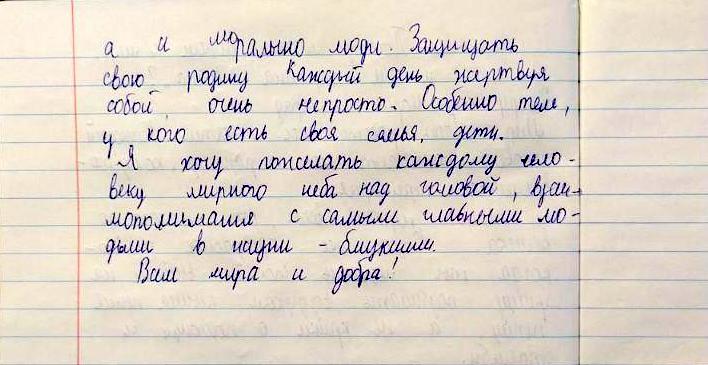 а и морально люди. Защищать
свою родину каждый день жертвуя
собой, очень непросто. Особенно тем,
у кого есть своя семья, дети.
Я хочу пожелать каждому чело-
веку мирного неба над головой, взаи-
мопонимания с самыми главными лю-
дьми в жизни - близкими.
Вам мира и добра!